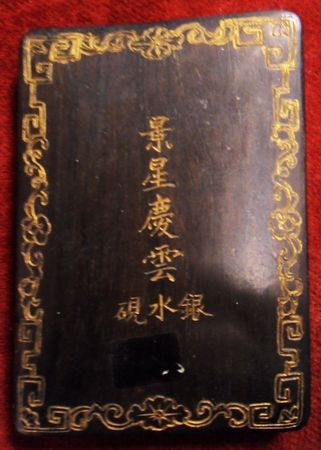 景星慶雲
銀水硯